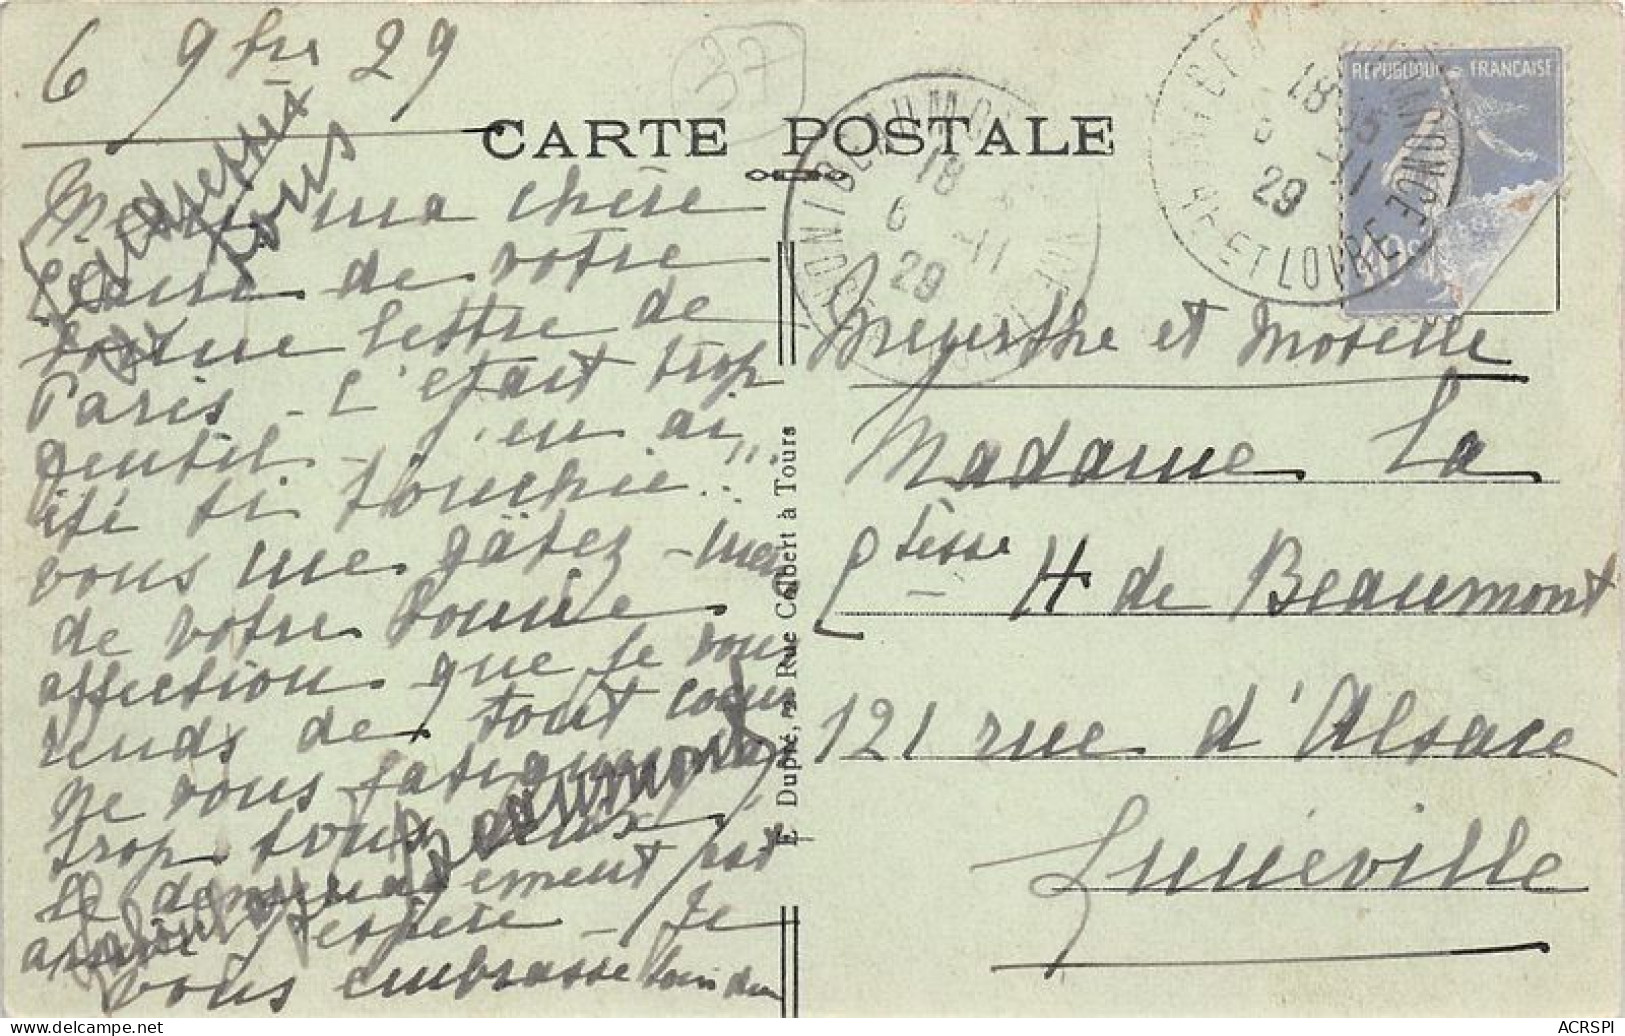 6 9bre 29
37
CARTE POSTALE
Merci ma chère
Claire de votre
bonne lettre de
Paris - C'était trop
gentil - j'en ai
été si touchée...
vous me gâtez - merci
de votre bonne
affection que je vous
rends de tout coeur
Ne vous fatiguez pas
trop tous deux
le déménagement est
arrivé j'espère - Je
vous embrasse tous deux
tendresses
à tous
Beaumont
E Dupré, 2 Rue Colbert à Tours
BEAUMONT
18
6 -11
29
REPUBLIQUE FRANÇAISE
18
-11
29
RE ET LOIRE
Meurthe et Moselle
Madame La
Ctesse H de Beaumont
121 rue d'Alsace
Lunéville
ACRSPI